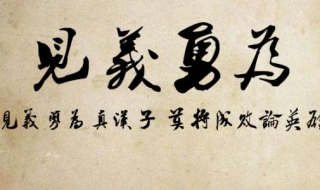 見義勇為
見義勇為真漢子 莫將成敗論英